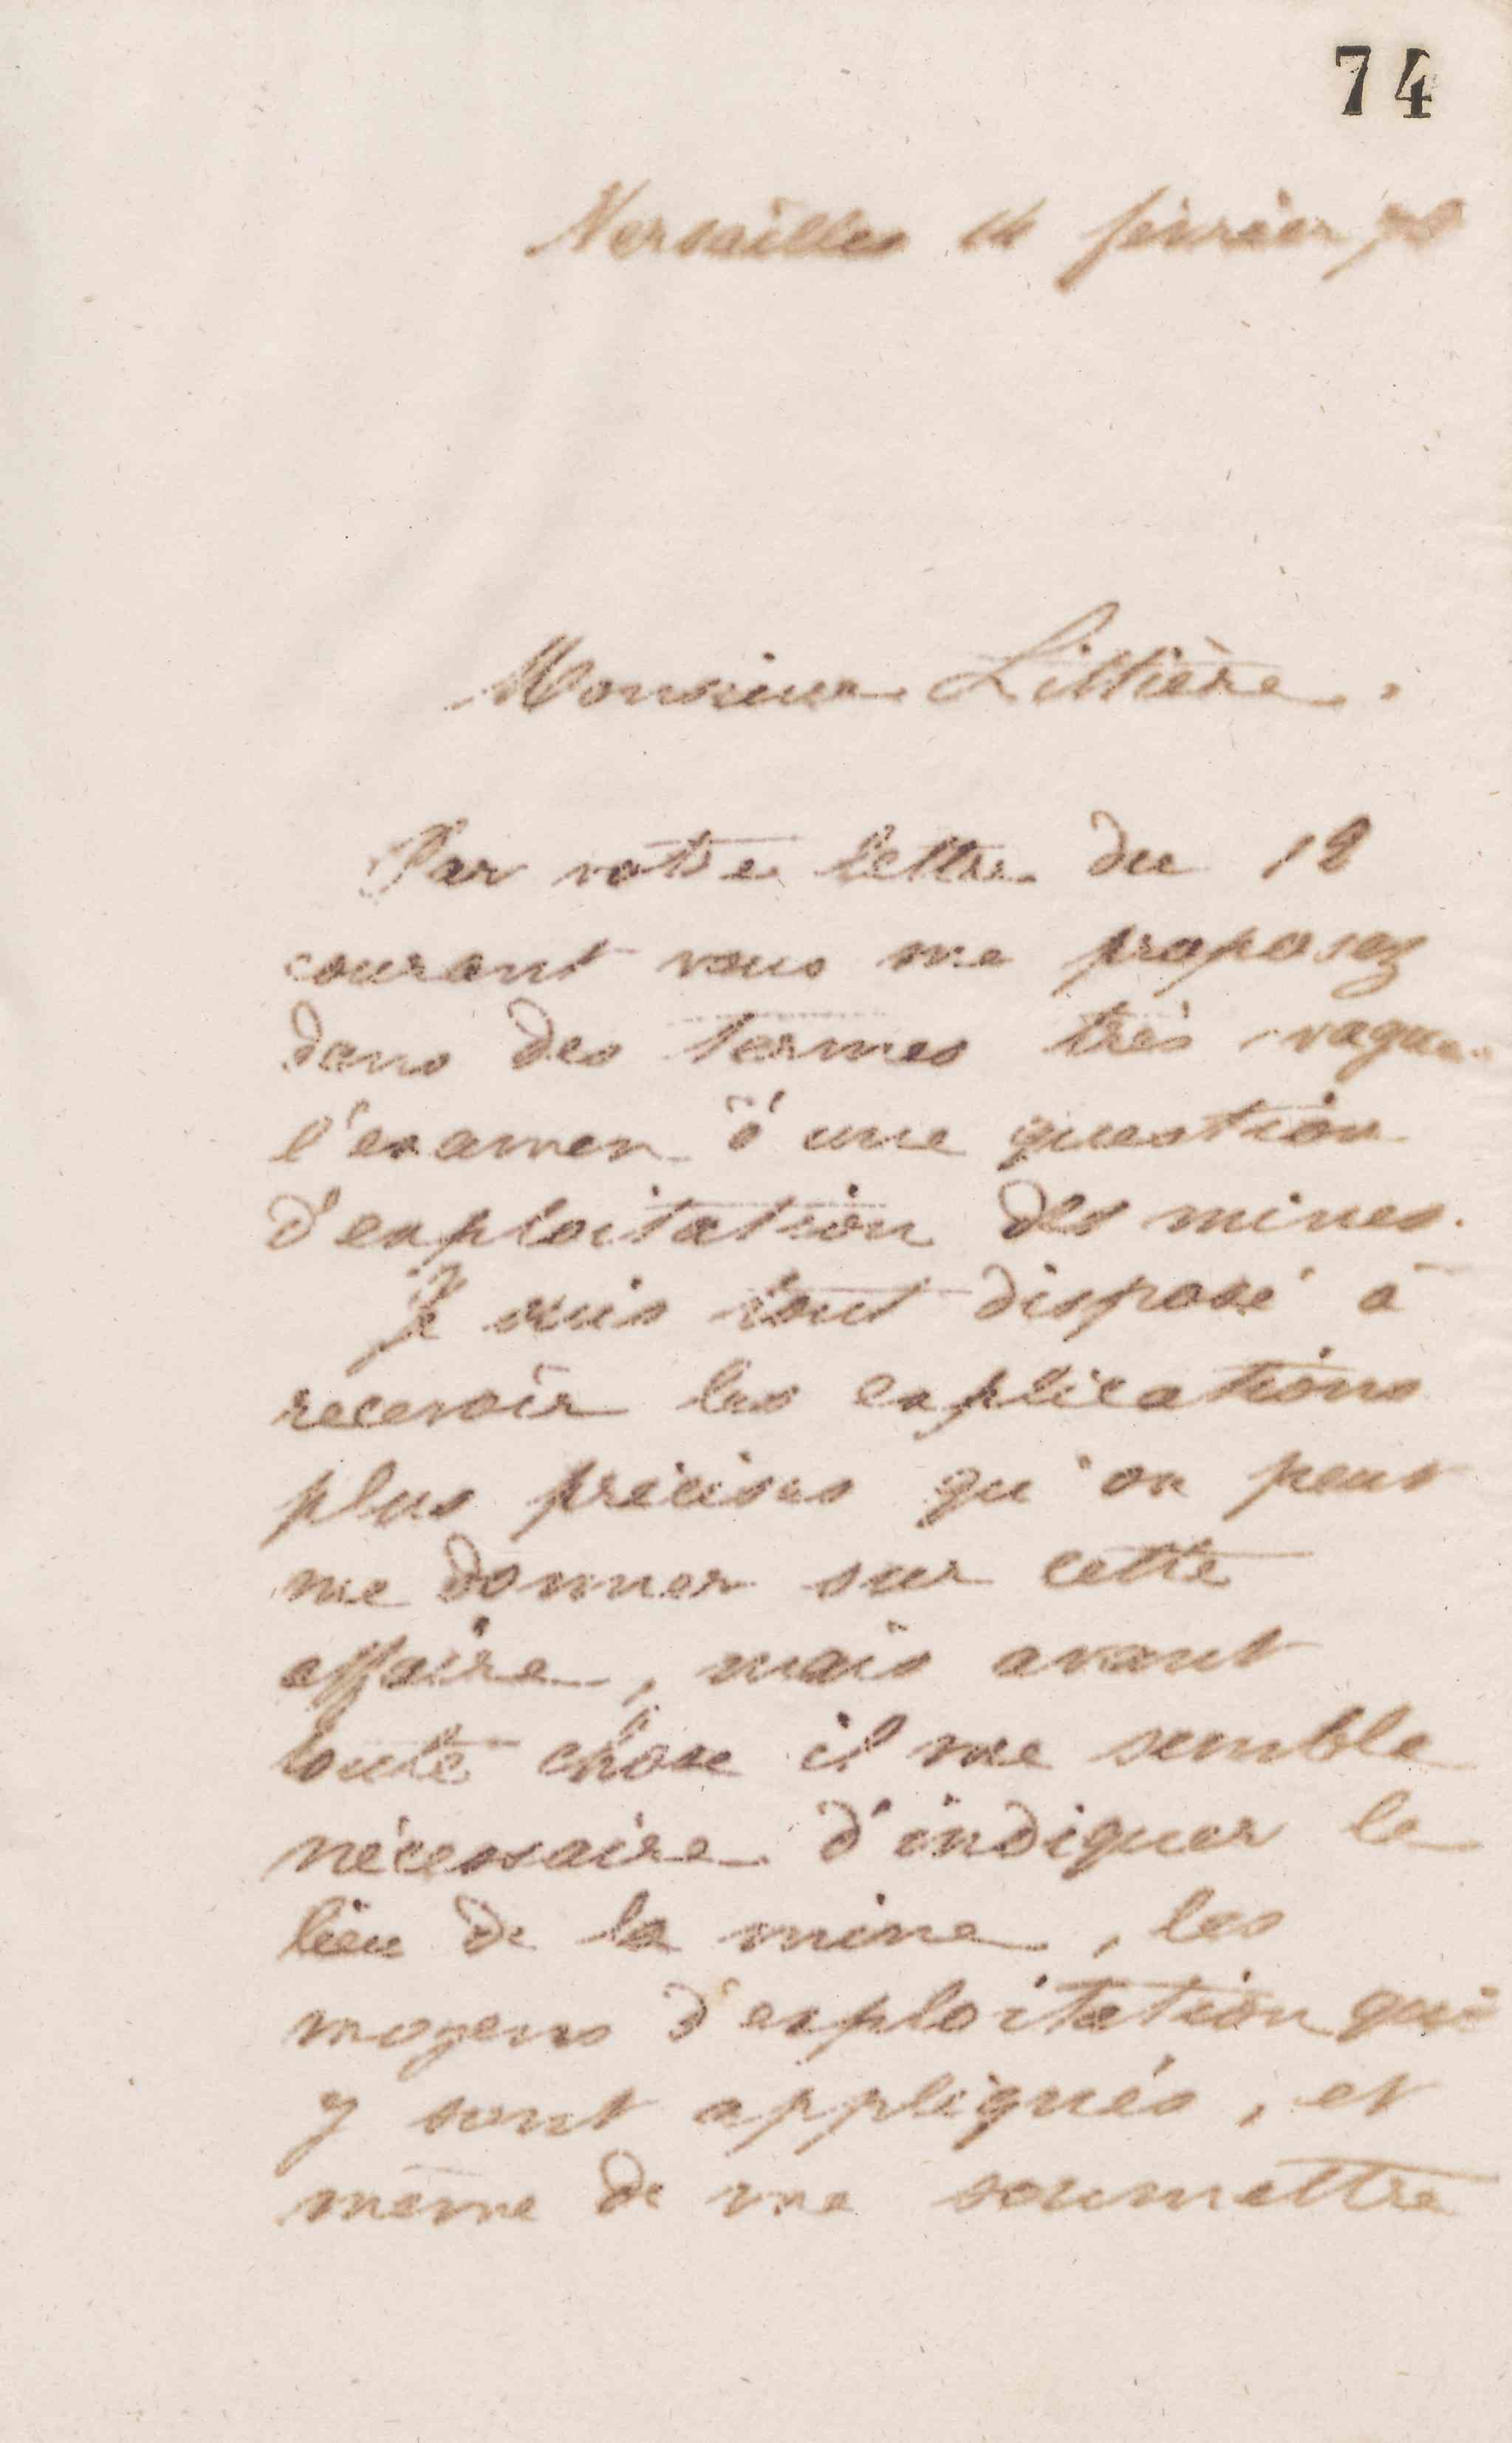 74
Versailles 14 février 78
Monsieur Littière.
Par votre lettre du 12
courant vous me proposez
dans des termes très vagues
l'examen d'une question
d'exploitation des mines.
Je suis tout disposé à
recevoir les explications
plus précises qu'on peut
me donner sur cette
affaire, mais avant
toute chose il me semble
nécessaire d'indiquer le
lieu de la mine, les
moyens d'exploitation qui
y sont appliqués, et
même de me soumettre